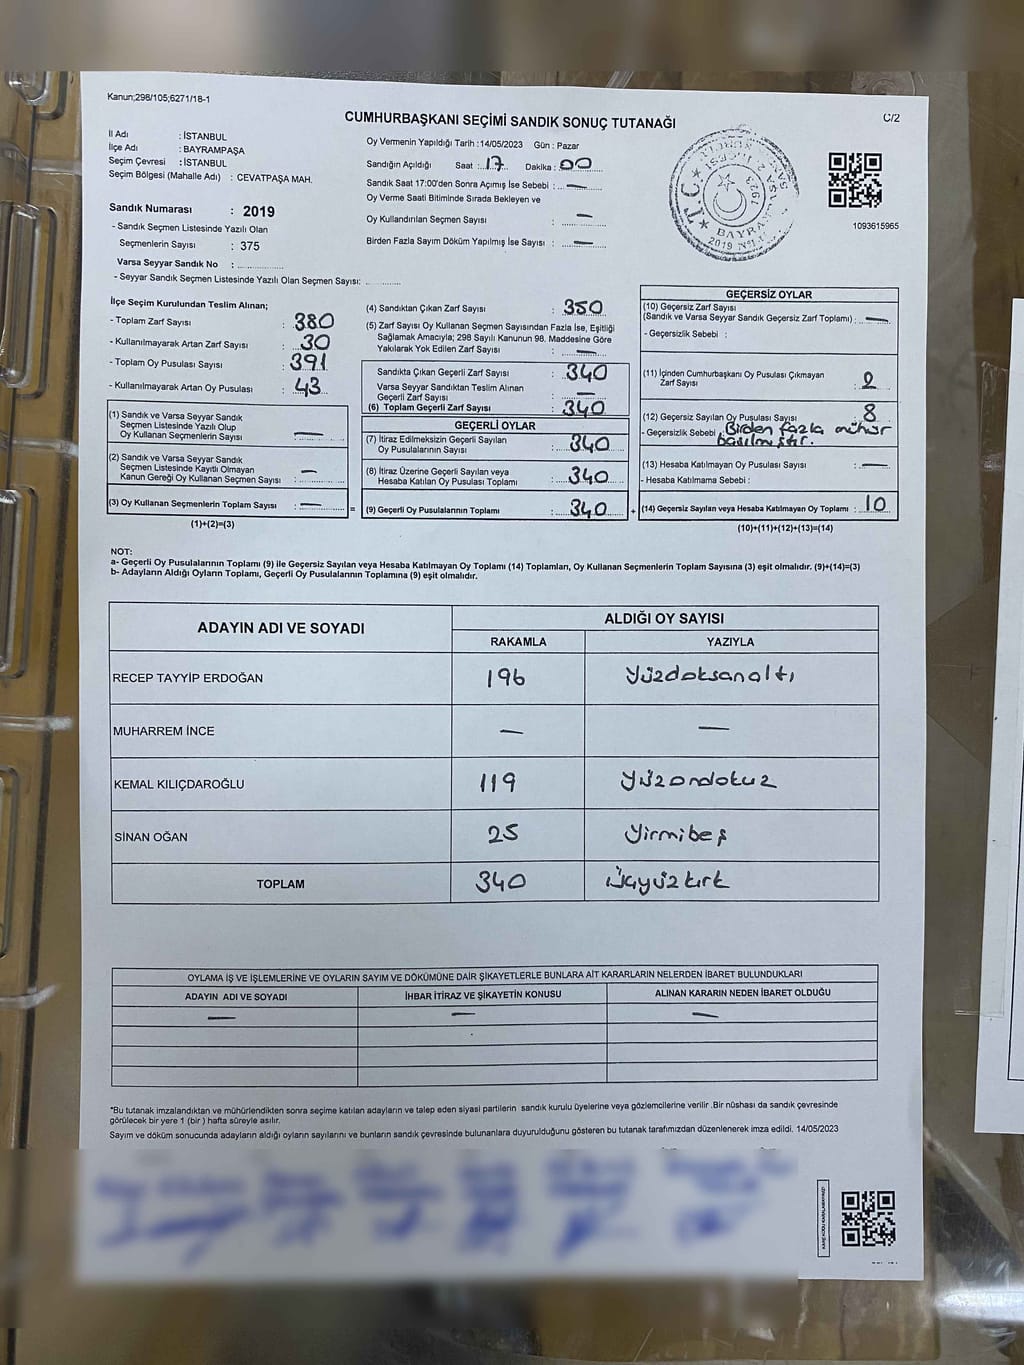 Kanun;298/105;6271/18-1
C/2
CUMHURBAŞKANI SEÇİMİ SANDIK SONUÇ TUTANAĞI
İl Adı : İSTANBUL
İlçe Adı : BAYRAMPAŞA
Seçim Çevresi : İSTANBUL
Seçim Bölgesi (Mahalle Adı) : CEVATPAŞA MAH.
Sandık Numarası : 2019
- Sandık Seçmen Listesinde Yazılı Olan
Seçmenlerin Sayısı : 375
Varsa Seyyar Sandık No : ..............
- Seyyar Sandık Seçmen Listesinde Yazılı Olan Seçmen Sayısı: ..............
Oy Vermenin Yapıldığı Tarih :14/05/2023 Gün : Pazar
Sandığın Açıldığı Saat :..17.. Dakika :.00
Sandık Saat 17:00'den Sonra Açımış İse Sebebi : —
Oy Verme Saati Bitiminde Sırada Bekleyen ve
Oy Kullandırılan Seçmen Sayısı : —
Birden Fazla Sayım Döküm Yapılmış İse Sayısı : —
T.C.
BAYRAMPAŞA
1923
2019 NO'LU
1093615965
İlçe Seçim Kurulundan Teslim Alınan;
- Toplam Zarf Sayısı : 380
- Kullanılmayarak Artan Zarf Sayısı : 30
- Toplam Oy Pusulası Sayısı : 391
- Kullanılmayarak Artan Oy Pusulası : 43
(1) Sandık ve Varsa Seyyar Sandık
Seçmen Listesinde Yazılı Olup
Oy Kullanan Seçmenlerin Sayısı : —
(2) Sandık ve Varsa Seyyar Sandık
Seçmen Listesinde Kayıtlı Olmayan
Kanun Gereği Oy Kullanan Seçmen Sayısı : —
(3) Oy Kullanan Seçmenlerin Toplam Sayısı : — =
(1)+(2)=(3)
(4) Sandıktan Çıkan Zarf Sayısı : 350
(5) Zarf Sayısı Oy Kullanan Seçmen Sayısından Fazla İse, Eşitliği
Sağlamak Amacıyla; 298 Sayılı Kanunun 98. Maddesine Göre
Yakılarak Yok Edilen Zarf Sayısı : —
Sandıkta Çıkan Geçerli Zarf Sayısı : 340
Varsa Seyyar Sandıktan Teslim Alınan
Geçerli Zarf Sayısı : —
(6) Toplam Geçerli Zarf Sayısı : 340
GEÇERLİ OYLAR
(7) İtiraz Edilmeksizin Geçerli Sayılan
Oy Pusulalarının Sayısı : 340
(8) İtiraz Üzerine Geçerli Sayılan veya
Hesaba Katılan Oy Pusulası Toplamı : 340
(9) Geçerli Oy Pusulalarının Toplamı : 340 +
GEÇERSİZ OYLAR
(10) Geçersiz Zarf Sayısı
(Sandık ve Varsa Seyyar Sandık Geçersiz Zarf Toplamı) : —
- Geçersizlik Sebebi :
(11) İçinden Cumhurbaşkanı Oy Pusulası Çıkmayan
Zarf Sayısı : 2
(12) Geçersiz Sayılan Oy Pusulası Sayısı : 8
- Geçersizlik Sebebi : Birden fazla mühür
basılmıştır.
(13) Hesaba Katılmayan Oy Pusulası Sayısı : —
- Hesaba Katılmama Sebebi :
(14) Geçersiz Sayılan veya Hesaba Katılmayan Oy Toplamı : 10
(10)+(11)+(12)+(13)=(14)
NOT:
a- Geçerli Oy Pusulalarının Toplamı (9) ile Geçersiz Sayılan veya Hesaba Katılmayan Oy Toplamı (14) Toplamları, Oy Kullanan Seçmenlerin Toplam Sayısına (3) eşit olmalıdır. (9)+(14)=(3)
b- Adayların Aldığı Oyların Toplamı, Geçerli Oy Pusulalarının Toplamına (9) eşit olmalıdır.
ADAYIN ADI VE SOYADI
ALDIĞI OY SAYISI
RAKAMLA YAZIYLA
RECEP TAYYİP ERDOĞAN 196 Yüzdoksanaltı
MUHARREM İNCE — —
KEMAL KILIÇDAROĞLU 119 Yüzondokuz
SİNAN OĞAN 25 Yirmibeş
TOPLAM 340 Üçyüzkırk
OYLAMA İŞ VE İŞLEMLERİNE VE OYLARIN SAYIM VE DÖKÜMÜNE DAİR ŞİKAYETLERLE BUNLARA AİT KARARLARIN NELERDEN İBARET BULUNDUKLARI
ADAYIN ADI VE SOYADI İHBAR İTİRAZ VE ŞİKAYETİN KONUSU ALINAN KARARIN NEDEN İBARET OLDUĞU
— — —
*Bu tutanak imzalandıktan ve mühürlendikten sonra seçime katılan adayların ve talep eden siyasi partilerin sandık kurulu üyelerine veya gözlemcilerine verilir .Bir nüshası da sandık çevresinde
görülecek bir yere 1 (bir ) hafta süreyle asılır.
Sayım ve döküm sonucunda adayların aldığı oyların sayılarını ve bunların sandık çevresinde bulunanlara duyurulduğunu gösteren bu tutanak tarafımızdan düzenlenerek imza edildi. 14/05/2023
KARE KODU KARALAMAYINIZ!